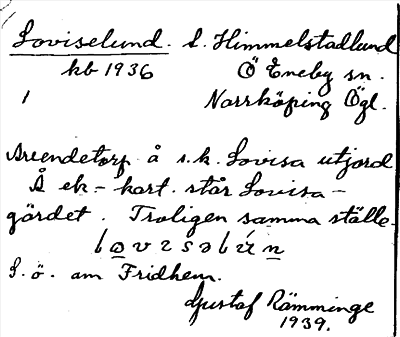 Loviselund. L. Himmelstadlund
kb 1936 Ö Eneby sn.
1 Norrköping Ögl.
Arrendetorp å s.k. Lovisa utjord
Å ek-kart. står Lovisa-
gördet. Troligen samma ställe.
S.ö. om Fridhem.
Gustaf Rämminge
1939.